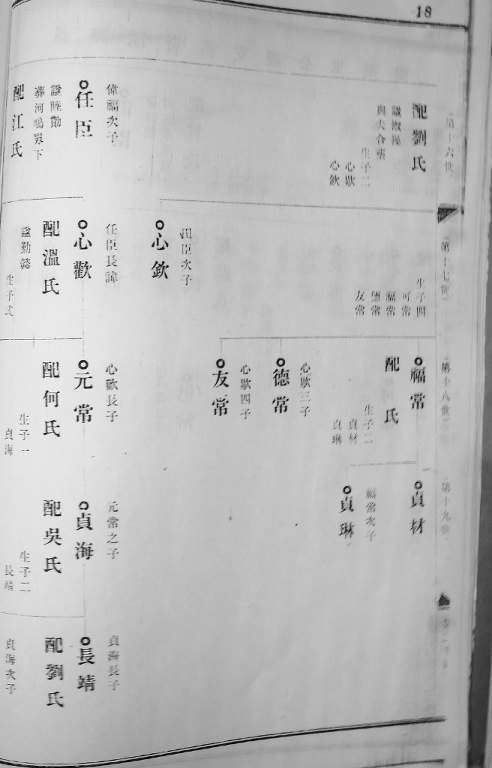 18
第十六世
配劉氏
諡淑操
與夫合葬
生子二
心歡
心欽
偉福次子
任臣
諡睦勤
配江氏
第十七世
生子四
可常
福常
德常
友常
次子
心欽
任臣長
心歡
諡勤懿
配溫氏
生子式
第十八世
福常
配 氏
生子二
貞材
貞琳
心歡三子
德常
心歡四子
友常
心歡長子
元常
配何氏
生子一
貞海
第十九世
貞材
福常次子
貞琳
元常之子
貞海
配吳氏
生子二
長靖
貞海長子
長靖
配劉氏
貞海次子